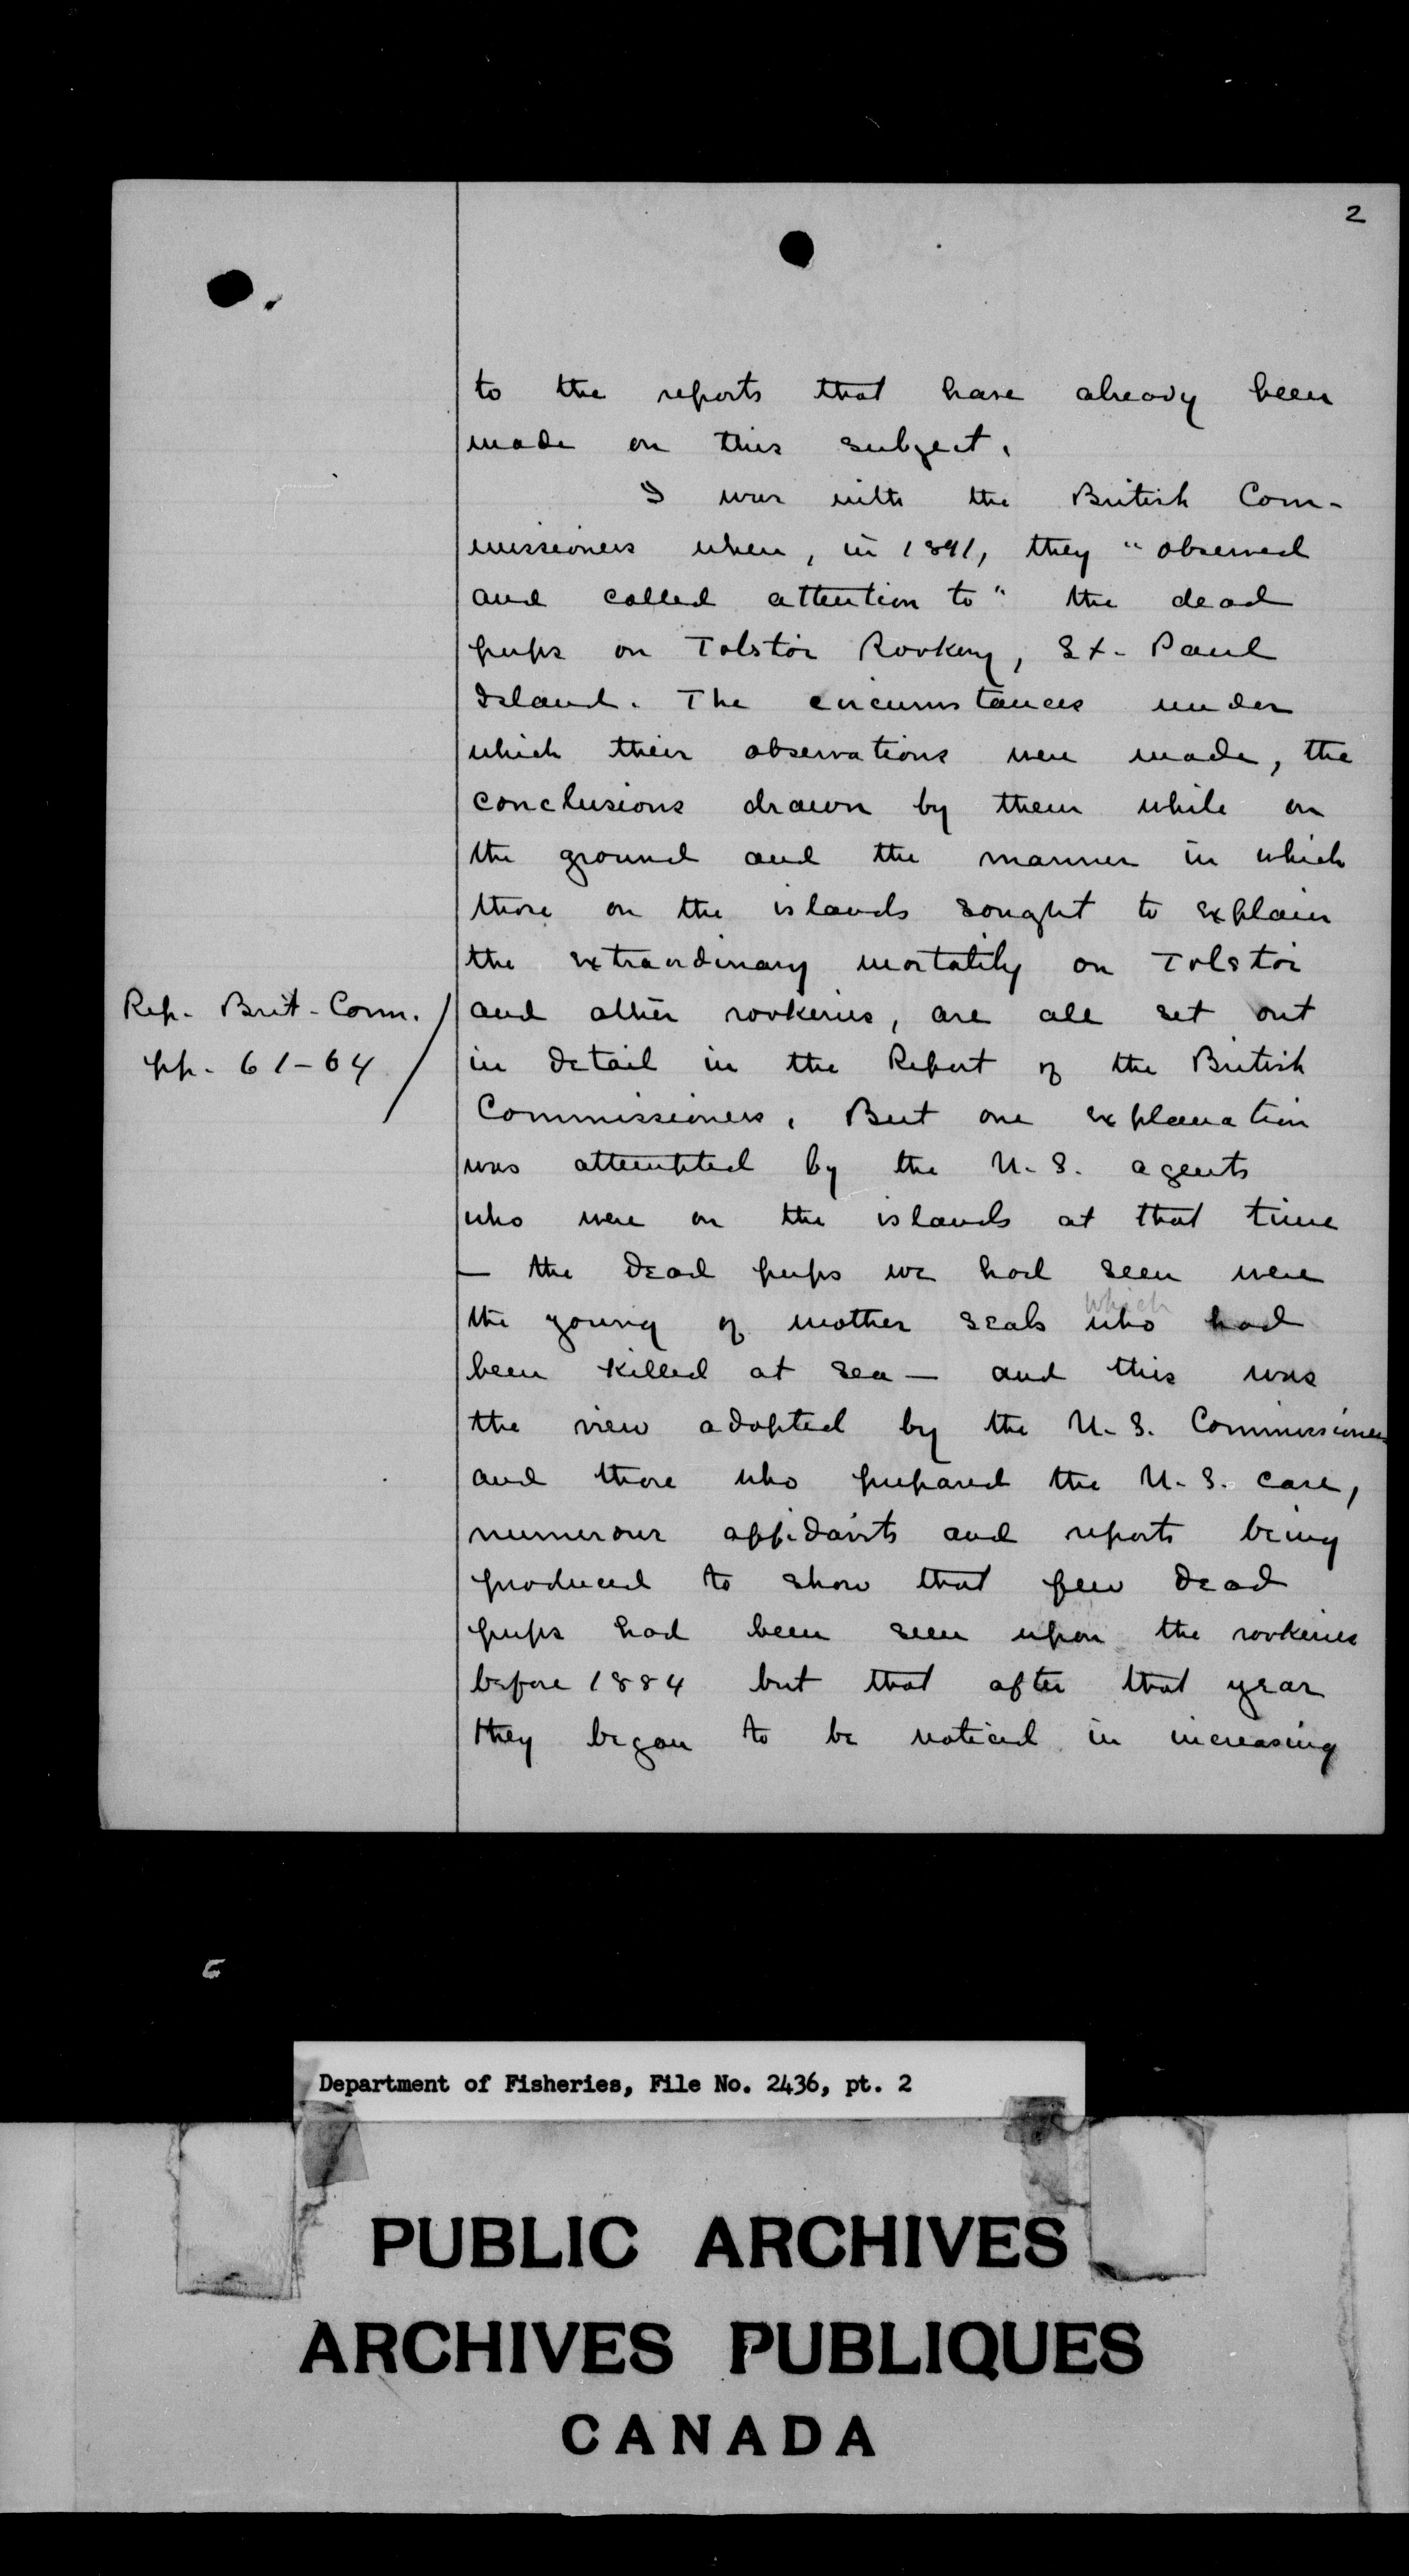 2
to the reports that have already been
made on this subject.
I was with the British Com-
missioners when, in 1891, they "observed
and called attention to" the dead
pups on Tolstoi Rookery, St. Paul
Island. The circumstances under
which their observations were made, the
conclusions drawn by them while on
the ground and the manner in which
those on the islands sought to explain
the extraordinary mortality on Tolstoi
Rep. Brit. Comm.
pp. 61-64
and other rookeries, are all set out
in detail in the Report of the British
Commissioners. But one explanation
was attempted by the U.S. agents
who were on the islands at that time
— the dead pups we had seen were
which
the young of mother seals who had
been killed at sea — and this was
the view adopted by the U.S. Commissioners
and those who prepared the U.S. case,
numerous affidavits and reports being
produced to show that few dead
pups had been seen upon the rookeries
before 1884 but that after that year
they began to be noticed in increasing
Department of Fisheries, File No. 2436, pt. 2
PUBLIC ARCHIVES
ARCHIVES PUBLIQUES
CANADA